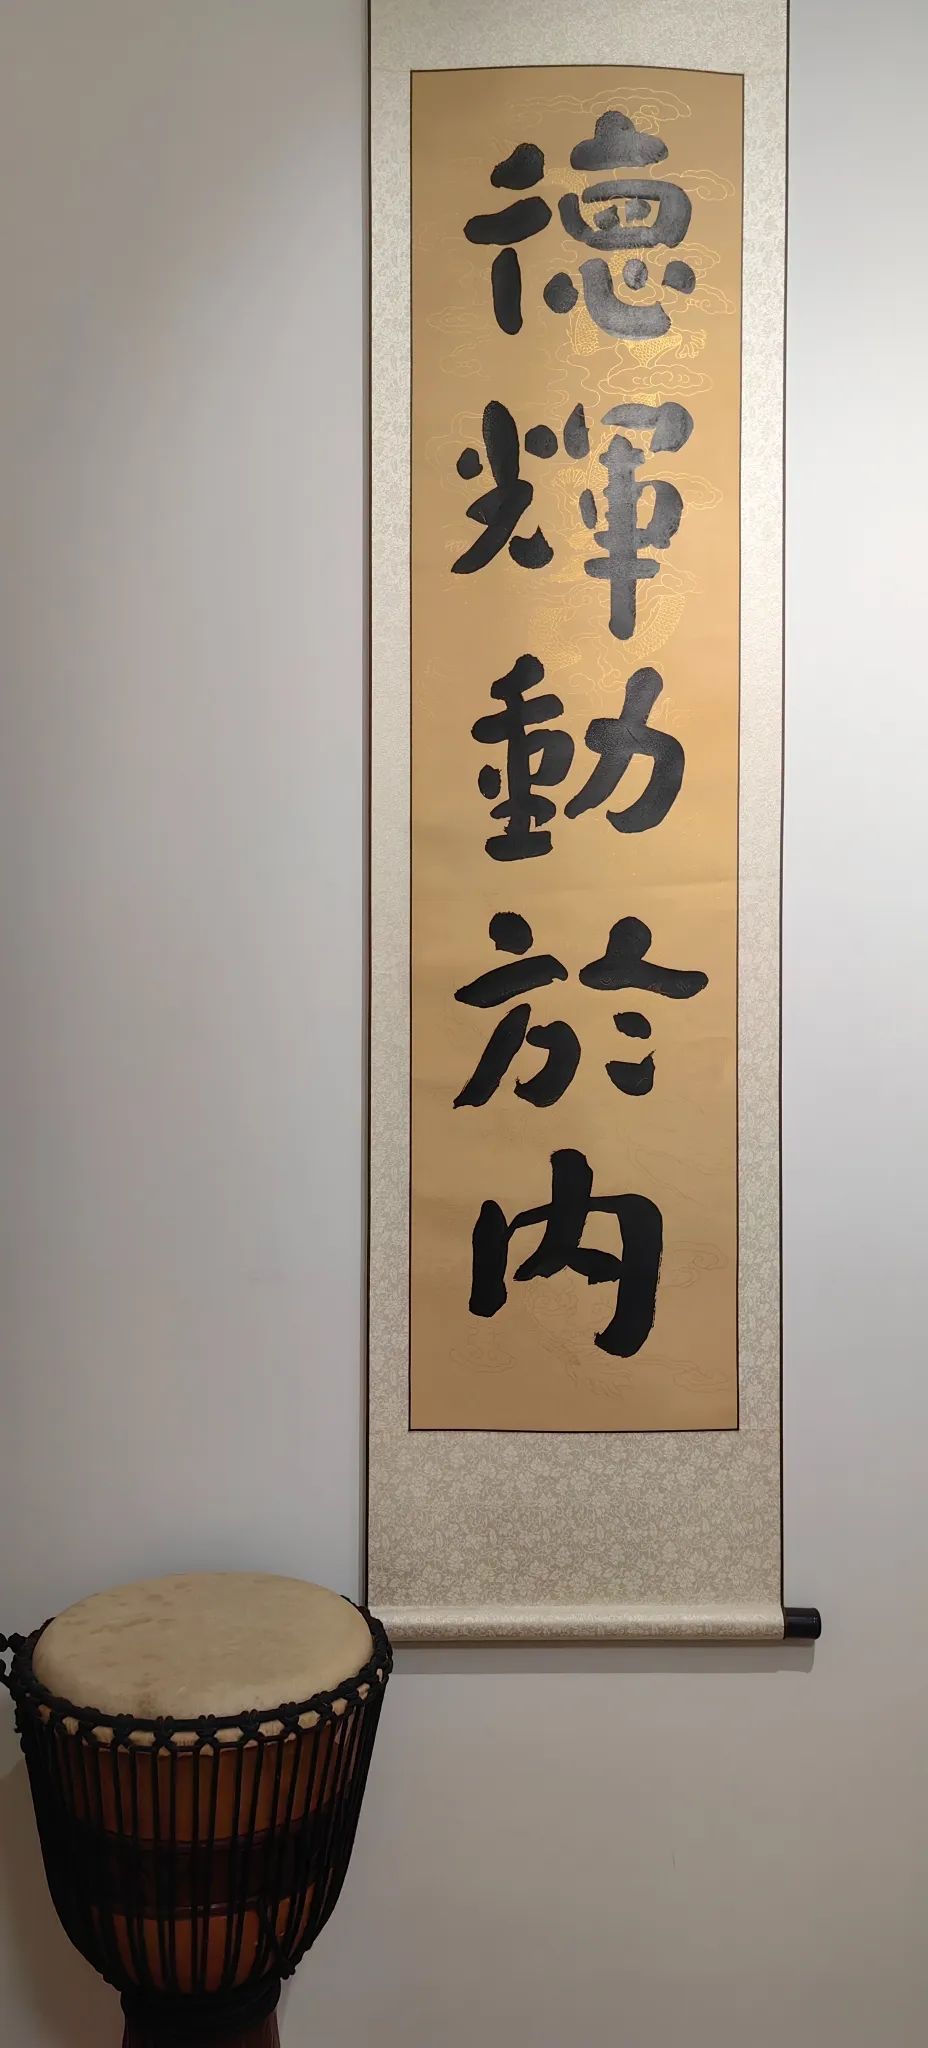 德輝動於内